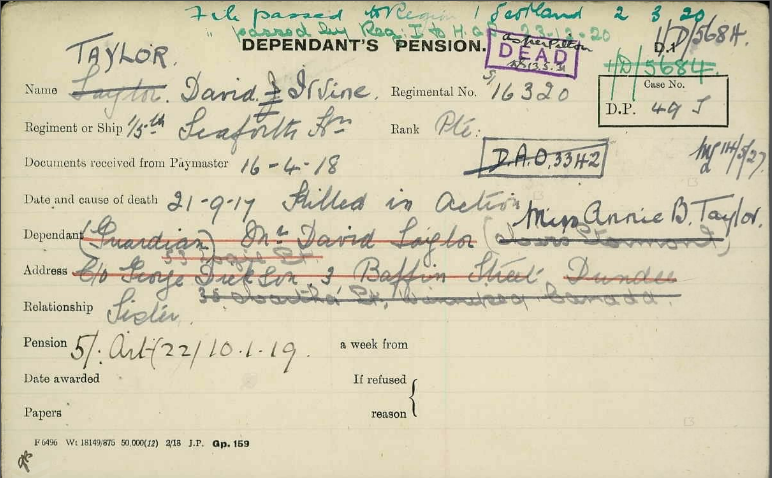 File passed to Region 1 Scotland 2 3 20
" passed by Reg. I to H.Q. 23-12-20
DEPENDANT'S PENSION.
DEAD
D.1
1/D/5684.
1/D/5684.
TAYLOR.
Name Saylor. David J Irvine. Regimental No. S/16320
Case No.
D.P. 49 J
Regiment or Ship 1/5-th Seaforth Hrs Rank Pte.
Documents received from Paymaster 16-4-18
D.A.O. 3342
14/5/27.
Date and cause of death 21-9-17 Killed in Action
Miss Annie B. Taylor.
Dependant (Guardian) Mr David Saylor
Address C/o George Dickson, 3 Baffin Street Dundee
Winnipeg Canada.
Relationship Sister.
Pension 5/. Art (22) 10.1.19. a week from
Date awarded If refused
Papers reason
F 6496 Wt 18149/875 50,000(12) 2/18 J.P. Gp. 159